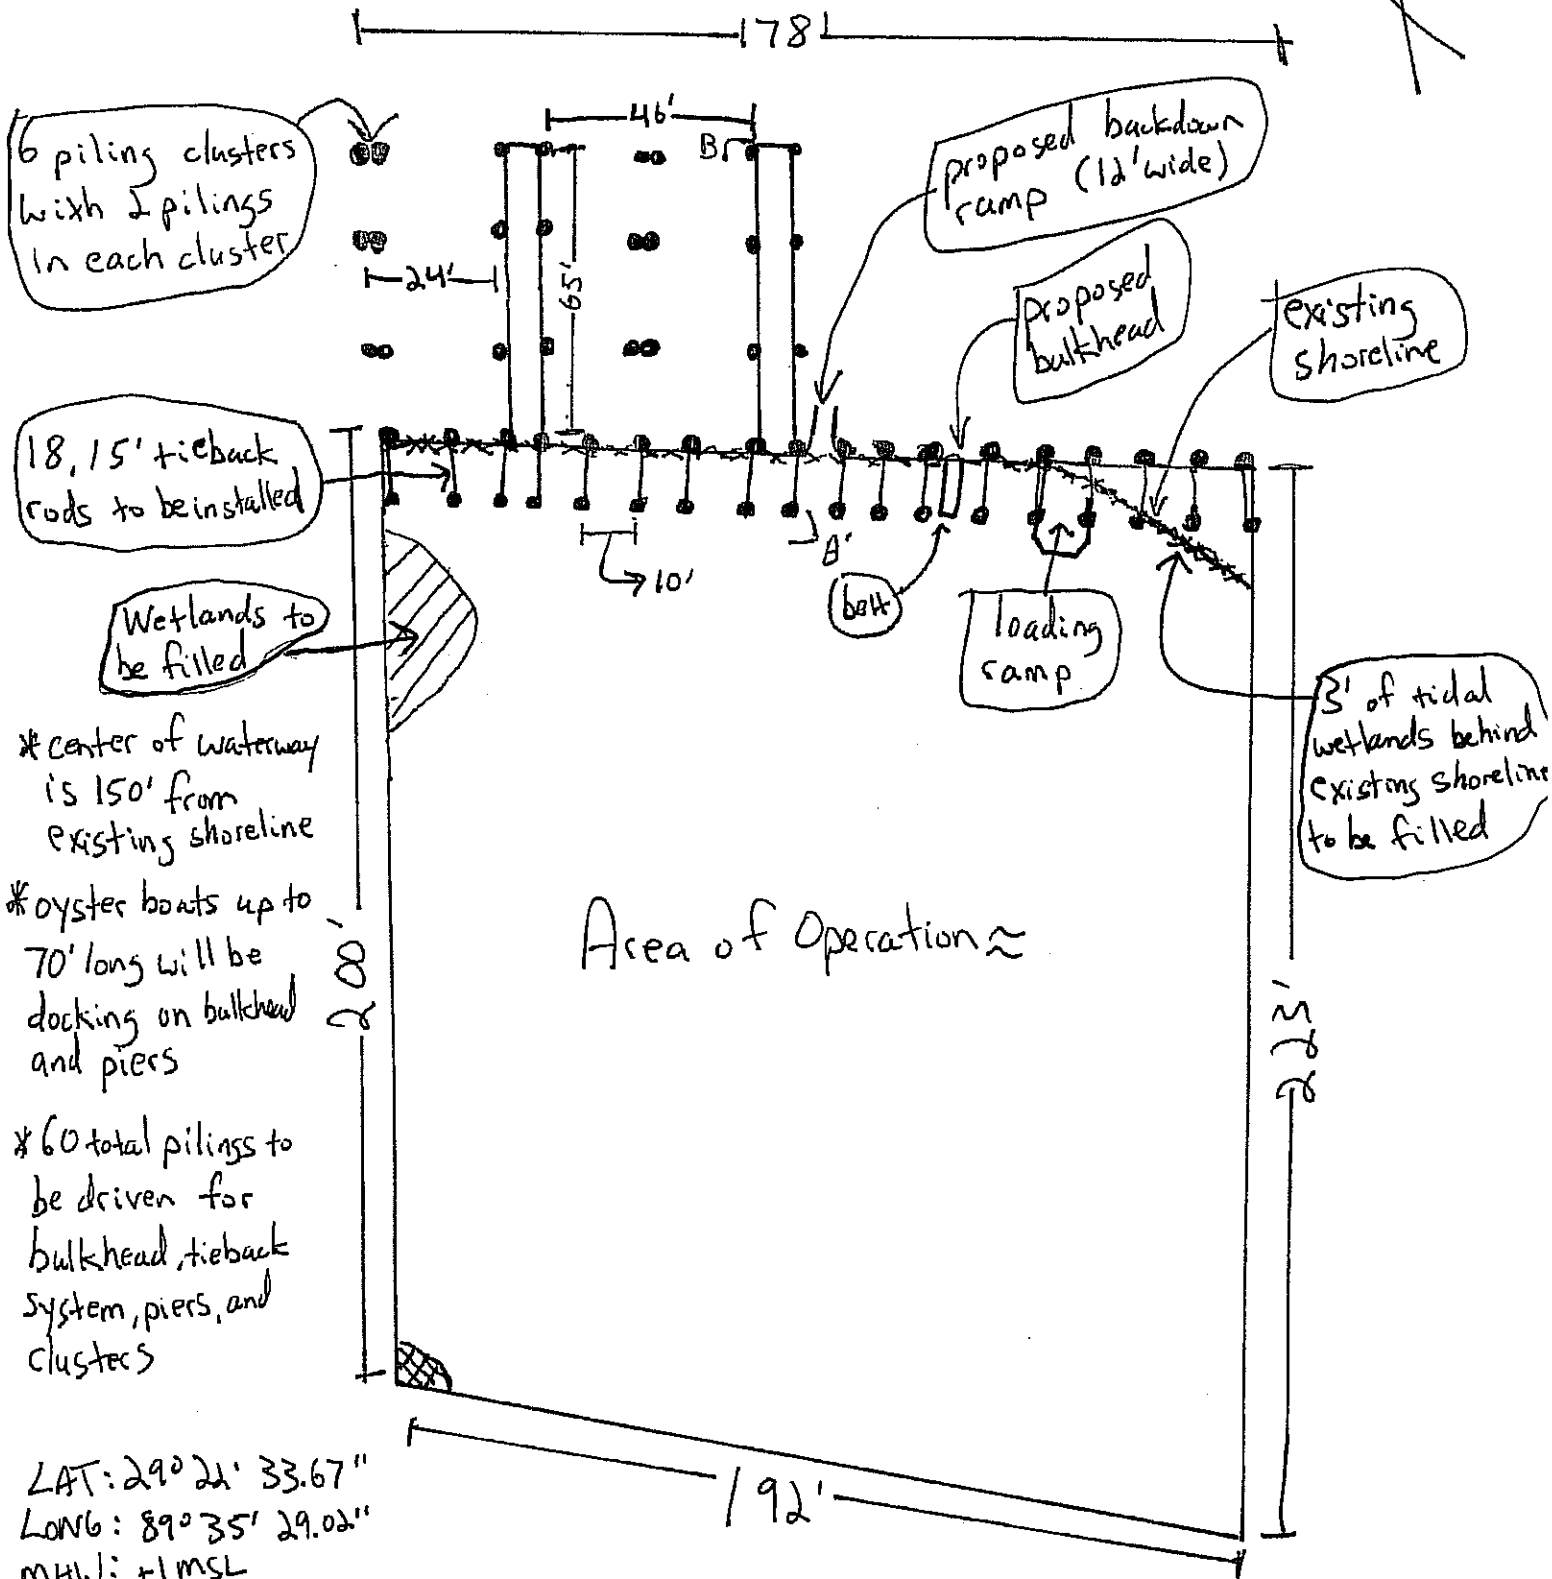 178'
6 piling clusters
with 2 pilings
in each cluster
46'
B
proposed backdown
ramp (12' wide)
24'
65'
proposed
bulkhead
existing
shoreline
18, 15' tieback
rods to be installed
10'
B'
belt
loading
ramp
Wetlands to
be filled
3' of tidal
wetlands behind
existing shoreline
to be filled
* center of waterway
is 150' from
existing shoreline
* oyster boats up to
70' long will be
docking on bulkhead
and piers
200'
Area of Operation ≈
225'
* 60 total pilings to
be driven for
bulkhead, tieback
system, piers, and
clusters
192'
LAT: 29° 22' 33.67"
LONG: 89° 35' 29.02"
MHW: +1 MSL